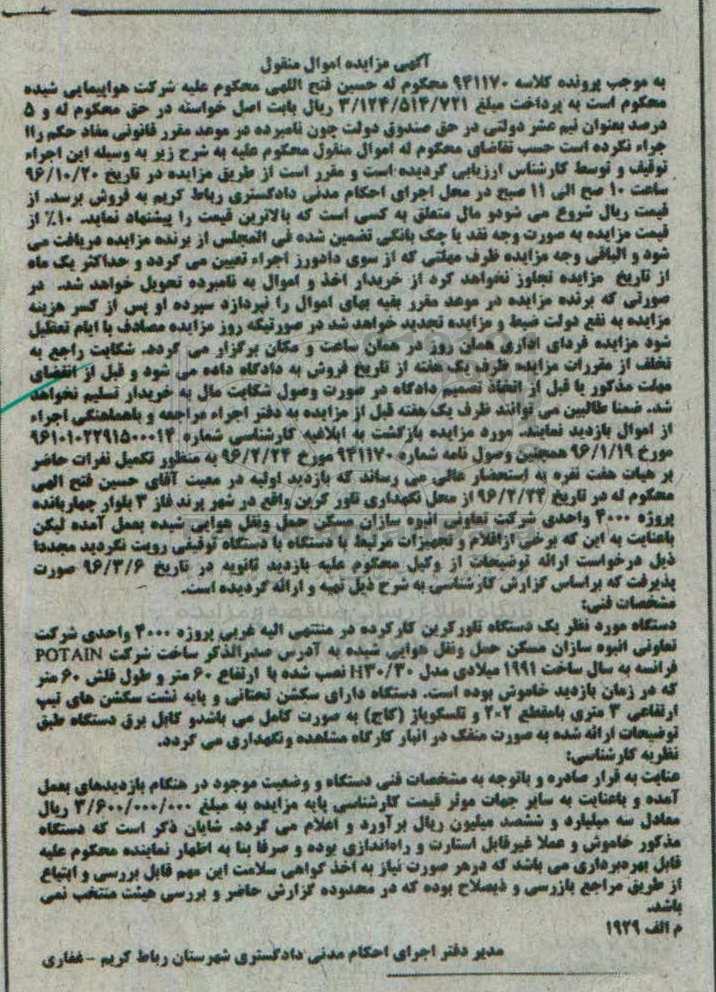 آگهی مزایده اموال منقول
به موجب پرونده کلاسه ۹۴۱۱۷۰ محکوم له حسین فتح اللهی محکوم علیه شرکت هواپیمایی شیده
محکوم است به پرداخت مبلغ ۳/۱۲۴/۵۱۴/۷۲۱ ریال بابت اصل خواسته در حق محکوم له و ۵
درصد بعنوان نیم عشر دولتی در حق صندوق دولت چون نامبرده در موعد مقرر قانونی مفاد حکم راا
جراء نکرده است حسب تقاضای محکوم له اموال منقول محکوم علیه به شرح زیر به وسیله این اجراء
توقیف و توسط کارشناس ارزیابی گردیده است و مقرر است از طریق مزایده در تاریخ ۹۶/۱۰/۲۰
ساعت ۱۰ صبح الی ۱۱ صبح در محل اجرای احکام مدنی دادگستری رباط کریم به فروش برسد. از
قیمت ریال شروع می شودو مال متعلق به کسی است که بالاترین قیمت را پیشنهاد نماید. ۱۰٪ از
قیمت مزایده به صورت وجه نقد یا چک بانکی تضمین شده فی المجلس از برنده مزایده دریافت می
شود و الباقی وجه مزایده ظرف مهلتی که از سوی دادورز اجراء تعیین می گردد و حداکثر یک ماه
از تاریخ مزایده تجاوز نخواهد کرد از خریدار اخذ و اموال به نامبرده تحویل خواهد شد. در
صورتی که برنده مزایده در موعد مقرر بقیه بهای اموال را نپردازد سپرده او پس از کسر هزینه
مزایده به نفع دولت ضبط و مزایده تجدید خواهد شد در صورتیکه روز مزایده مصادف با ایام تعطیل
شود مزایده فردای اداری همان روز در همان ساعت و مکان برگزار می گردد. شکایت راجع به
تخلف از مقررات مزایده ظرف یک هفته از تاریخ فروش به دادگاه داده می شود و قبل از انقضای
مهلت مذکور یا قبل از اتخاذ تصمیم دادگاه در صورت وصول شکایت مال به خریدار تسلیم نخواهد
شد. ضمنا طالبین می توانند ظرف یک هفته قبل از مزایده به دفتر اجراء مراجعه و باهماهنگی اجراء
از اموال بازدید نمایند. مورد مزایده بازگشت به ابلاغیه کارشناسی شماره ۹۶۱۰۱۰۲۲۹۱۵۰۰۰۱۴
مورخ ۹۶/۱/۱۹ همچنین وصول نامه شماره ۹۳۱۱۷۰ مورخ ۹۶/۲/۲۴ به منظور تکمیل نفرات حاضر
بر هیات هفت نفره به استحضار عالی می رساند که بازدید اولیه در معیت آقای حسین فتح الهی
محکوم له در تاریخ ۹۶/۲/۲۴ از محل نگهداری تاور کرین واقع در شهر پرند فاز ۳ بلوار چهاربانده
پروژه ۴۰۰۰ واحدی شرکت تعاونی انبوه سازان مسکن حمل ونقل هوایی شیده بعمل آمده لیکن
باعنایت به این که برخی ازاقلام و تجهیزات مرتبط با دستگاه با دستگاه توقیفی رویت نگردید مجددا
ذیل درخواست ارائه توضیحات از وکیل محکوم علیه بازدید ثانویه در تاریخ ۹۶/۳/۶ صورت
پذیرفت که براساس گزارش کارشناسی به شرح ذیل تهیه و ارائه گردیده است.
مشخصات فنی:
دستگاه مورد نظر یک دستگاه تاورکرین کارکرده در منتهی الیه غربی پروژه ۴۰۰۰ واحدی شرکت
تعاونی انبوه سازان مسکن حمل ونقل هوایی شیده به آدرس صدرالذکر ساخت شرکت POTAIN
فرانسه به سال ساخت ۱۹۹۱ میلادی مدل H۳۰/۳۰ نصب شده با ارتفاع ۶۰ متر و طول فلش ۶۰ متر
که در زمان بازدید خاموش بوده است. دستگاه دارای سکشن تحتانی و پایه نشت سکشن های تیپ
ارتفاعی ۳ متری بامقطع ۲×۲ و تلسکوپاژ (کاج) به صورت کامل می باشدو کابل برق دستگاه طبق
توضیحات ارائه شده به صورت منفک در انبار کارگاه مشاهده ونگهداری می گردد.
نظریه کارشناسی:
عنایت به قرار صادره و باتوجه به مشخصات فنی دستگاه و وضعیت موجود در هنگام بازدیدهای بعمل
آمده و باعنایت به سایر جهات موثر قیمت کارشناسی پایه مزایده به مبلغ ۳/۶۰۰/۰۰۰/۰۰۰ ریال
معادل سه میلیارد و ششصد میلیون ریال برآورد و اعلام می گردد. شایان ذکر است که دستگاه
مذکور خاموش و عملا غیرقابل استارت و راه‌اندازی بوده و صرفا بنا به اظهار نماینده محکوم علیه
قابل بهره‌برداری می باشد که درهر صورت نیاز به اخذ گواهی سلامت این مهم قابل بررسی و ابتیاع
از طریق مراجع بازرسی و ذیصلاح بوده که در محدوده گزارش حاضر و بررسی هیئت منتخب نمی
باشد.
م الف ۱۹۲۹
مدیر دفتر اجرای احکام مدنی دادگستری شهرستان رباط کریم - غفاری